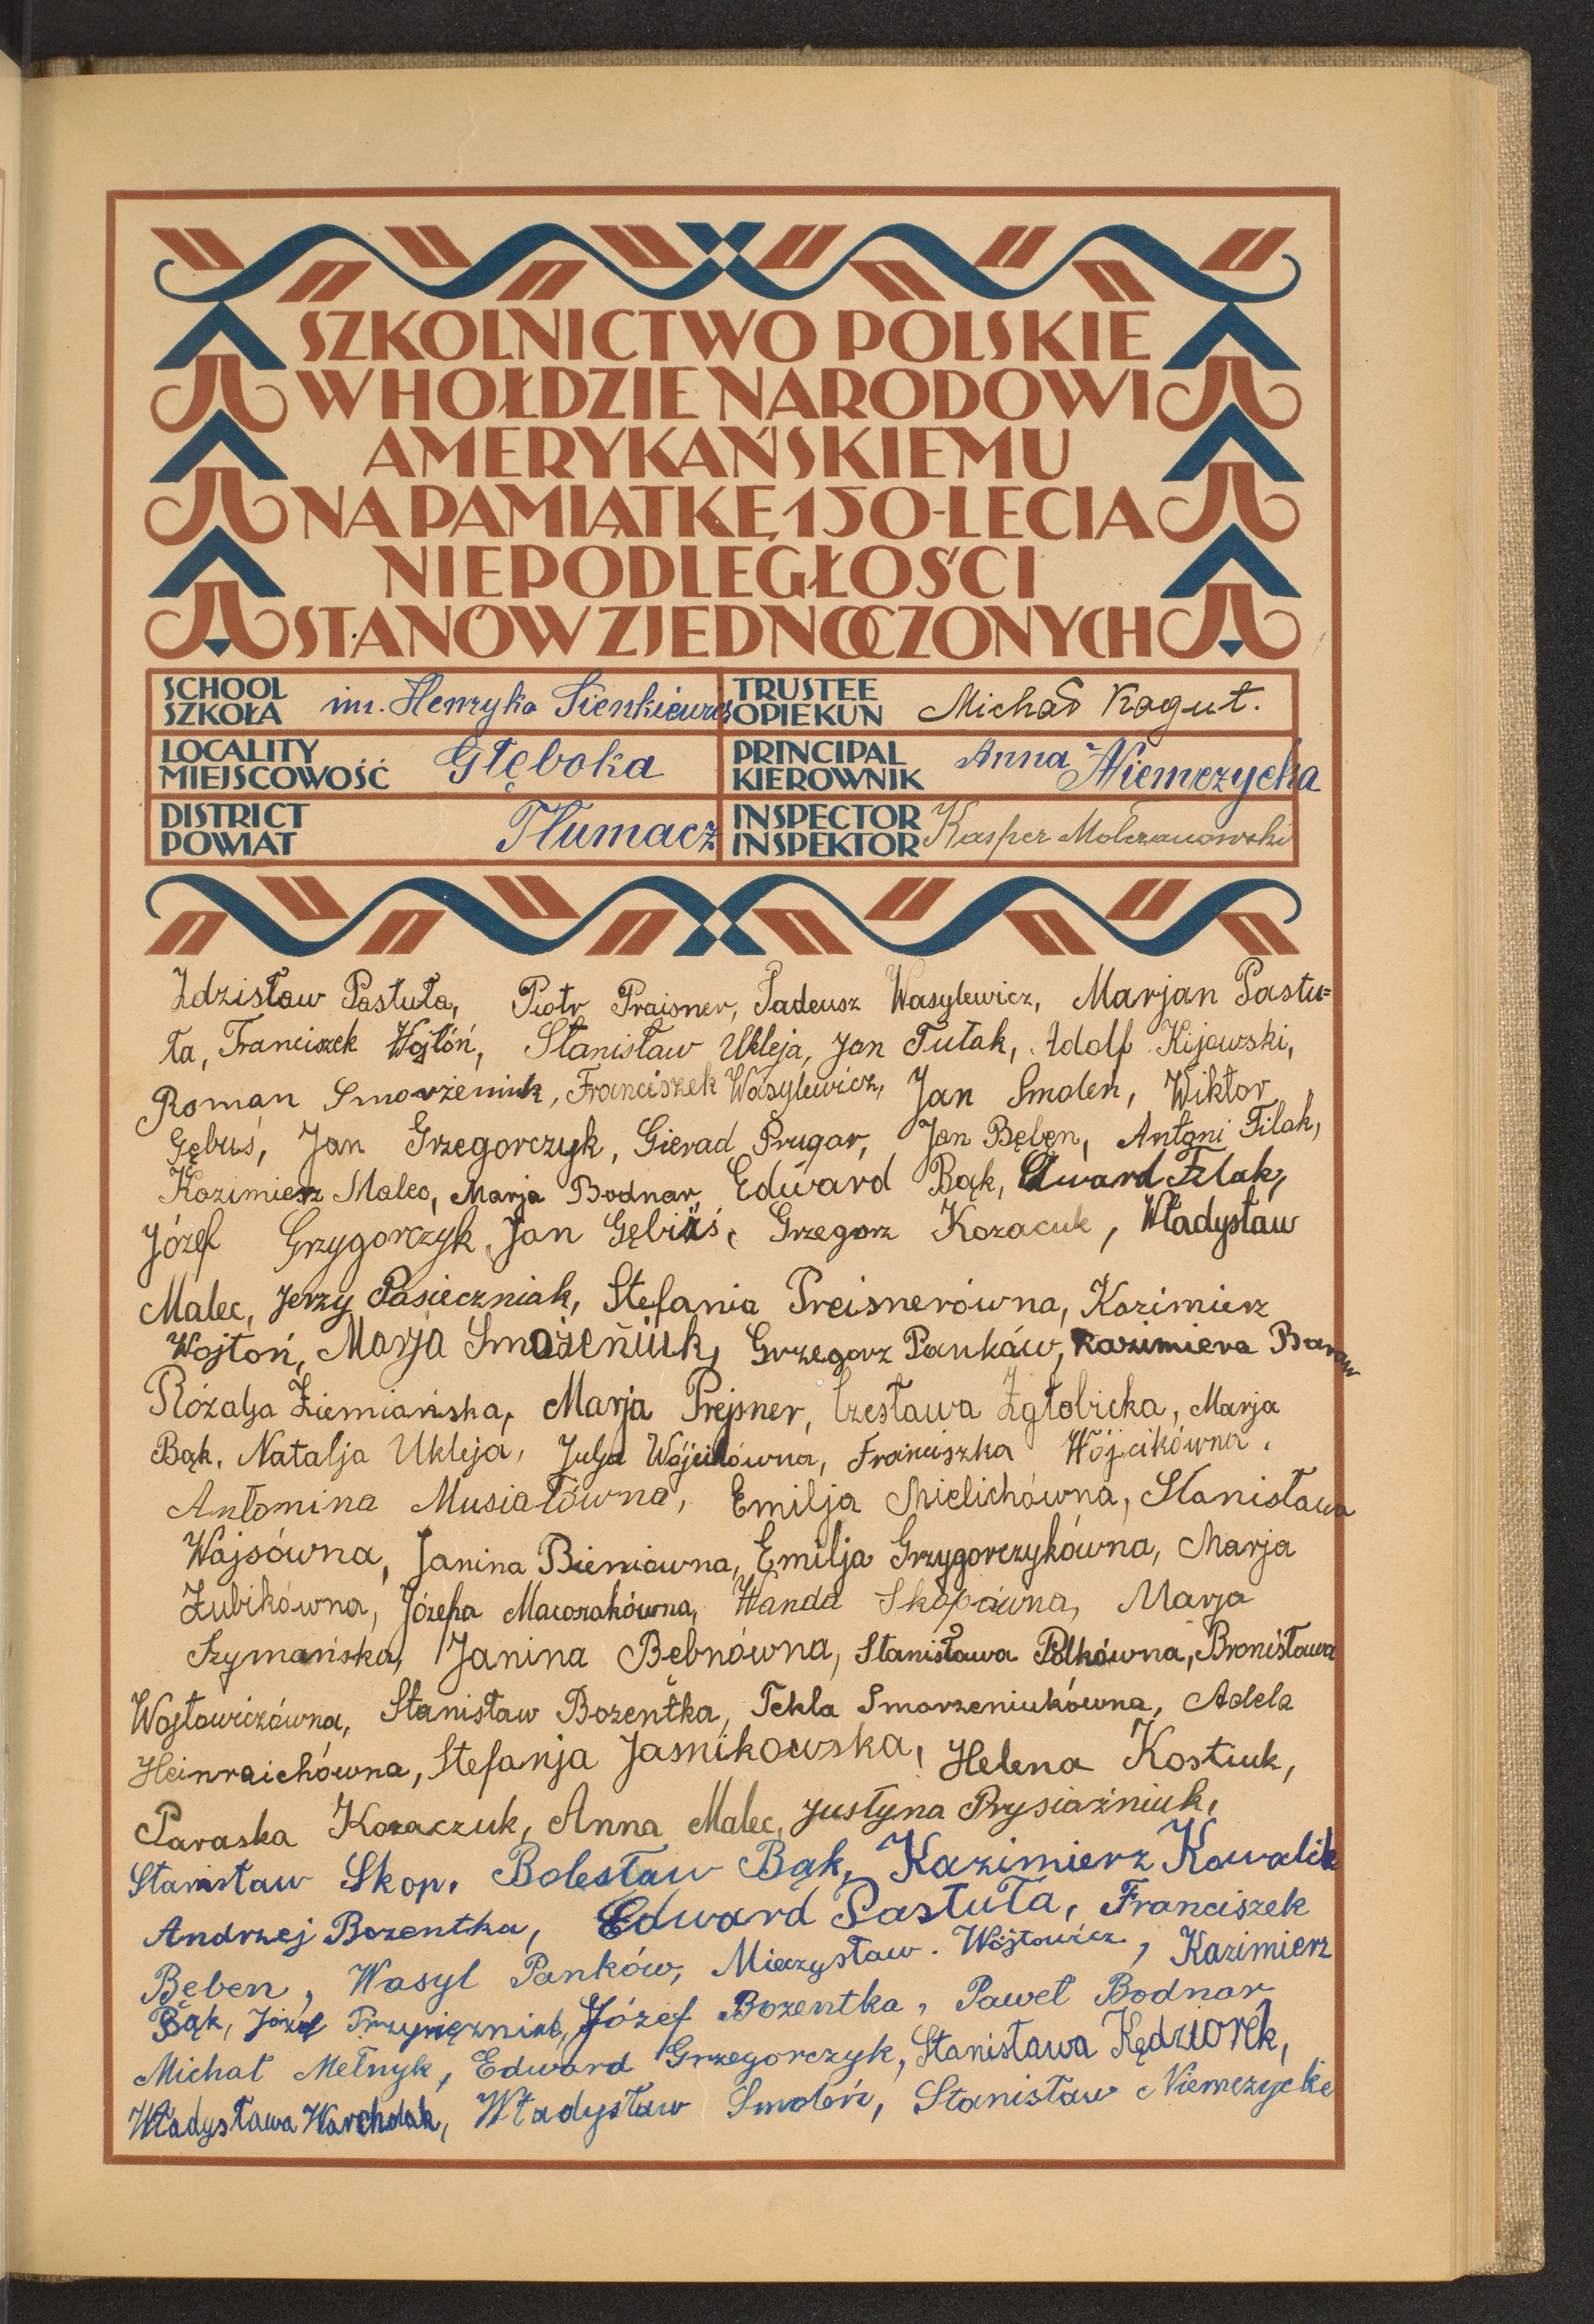 SZKOLNICTWO POLSKIE
W HOŁDZIE NARODOWI
AMERYKAŃSKIEMU
NA PAMIĄTKĘ 150-LECIA
NIEPODLEGŁOŚCI
STANÓW ZJEDNOCZONYCH
SCHOOL
SZKOŁA im. Henryka Sienkiewicz
TRUSTEE
OPIEKUN Michał Kogut.
LOCALITY
MIEJSCOWOŚĆ Głęboka
PRINCIPAL
KIEROWNIK Anna Niemczycka
DISTRICT
POWIAT Tłumacz
INSPECTOR
INSPEKTOR Kasper Mołczanowski
Zdzisław Pastuła, Piotr Praisner, Tadeusz Wasylewicz, Marjan Pastu=
ła, Franciszek Wojtóń, Stanisław Ukleja, Jan Tułak, Adolf Kijowski,
Roman Smorżeniuk, Franciszek Wasylewicz, Jan Smoleń, Wiktor
Gębuś, Jan Grzegorczyk, Gierad Prugar, Jan Bęben, Antoni Filak,
Kazimierz Malec, Marja Bodnar, Edward Bąk, Edward Filak,
Józef Grzygorczyk, Jan Gębuś, Grzegorz Kozacuk, Władysław
Malec, Jerzy Pasieczniak, Stefania Preisnerówna, Kazimierz
Wojtoń, Marja Smożeniuk, Grzegorz Panków, Kazimiera Baran
Rózalja Ziemiańska, Marja Prejsner, Czesława Zgłobicka, Marja
Bąk, Natalja Ukleja, Julja Wójcikówna, Franciszka Wójcikówna,
Antonina Musiałówna, Emilja Mielichówna, Stanisława
Wajsówna, Janina Bieniówna, Emilja Grzygorczykówna, Marja
Zubikówna, Józefa Macozakówna, Wanda Skopówna, Marja
Szymańska, Janina Bębnówna, Stanisława Polkówna, Bronisława
Wojtowiczówna, Stanisław Bozentka, Tekla Smorzeniukówna, Adela
Heinraichówna, Stefanja Jasnikowska, Helena Kostiuk,
Paraska Kozaczuk, Anna Malec, Justyna Prysiażniuk,
Stanisław Skop, Bolesław Bąk, Kazimierz Kowalik
Andrzej Bozentka, Edward Pastuła, Franciszek
Bęben, Wasyl Panków, Mieczysław Wójtowicz, Kazimierz
Bąk, Józef Józef Bozentka, Paweł Bodnar
Michał Mełnyk, Edward Grzegorczyk, Stanisława Kędziorek,
Władysława Warcholak, Władysław Smoleń, Stanisław Niemczycki